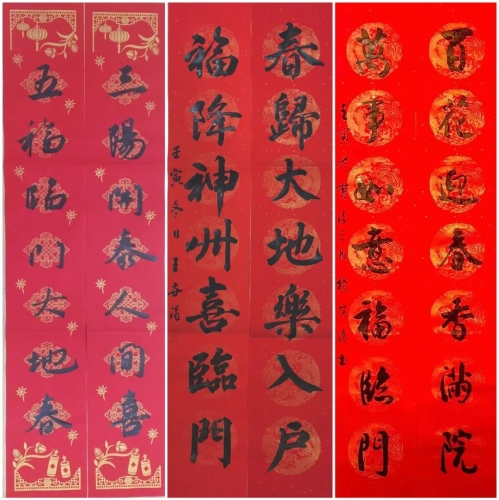 三陽開泰人間喜
五福臨門大地春
春歸大地樂入戶
福降神州喜臨門
壬寅冬日王
百花迎春香滿院
萬事如意福臨門